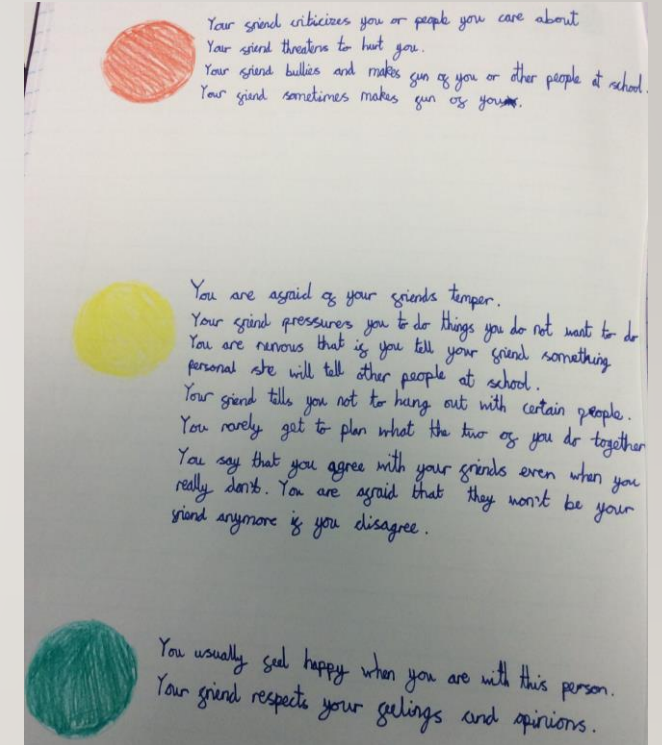 Your friend criticizes you or people you care about
Your friend threatens to hurt you.
Your friend bullies and makes fun of you or other people at school.
Your friend sometimes makes fun of you.
You are afraid of your friends temper.
Your frind pressurers you to do things you do not want to do
You are nervous that if you tell your friend something
personal she will tell other people at school.
Your friend tells you not to hang out with certain people.
You rarely get to plan what the two of you do together
You say that you agree with your friends even when you
really don't. You are afraid that they won't be your
friend anymore if you disagree.
You usually feel happy when you are with this person.
Your friend respects your feelings and opinions.